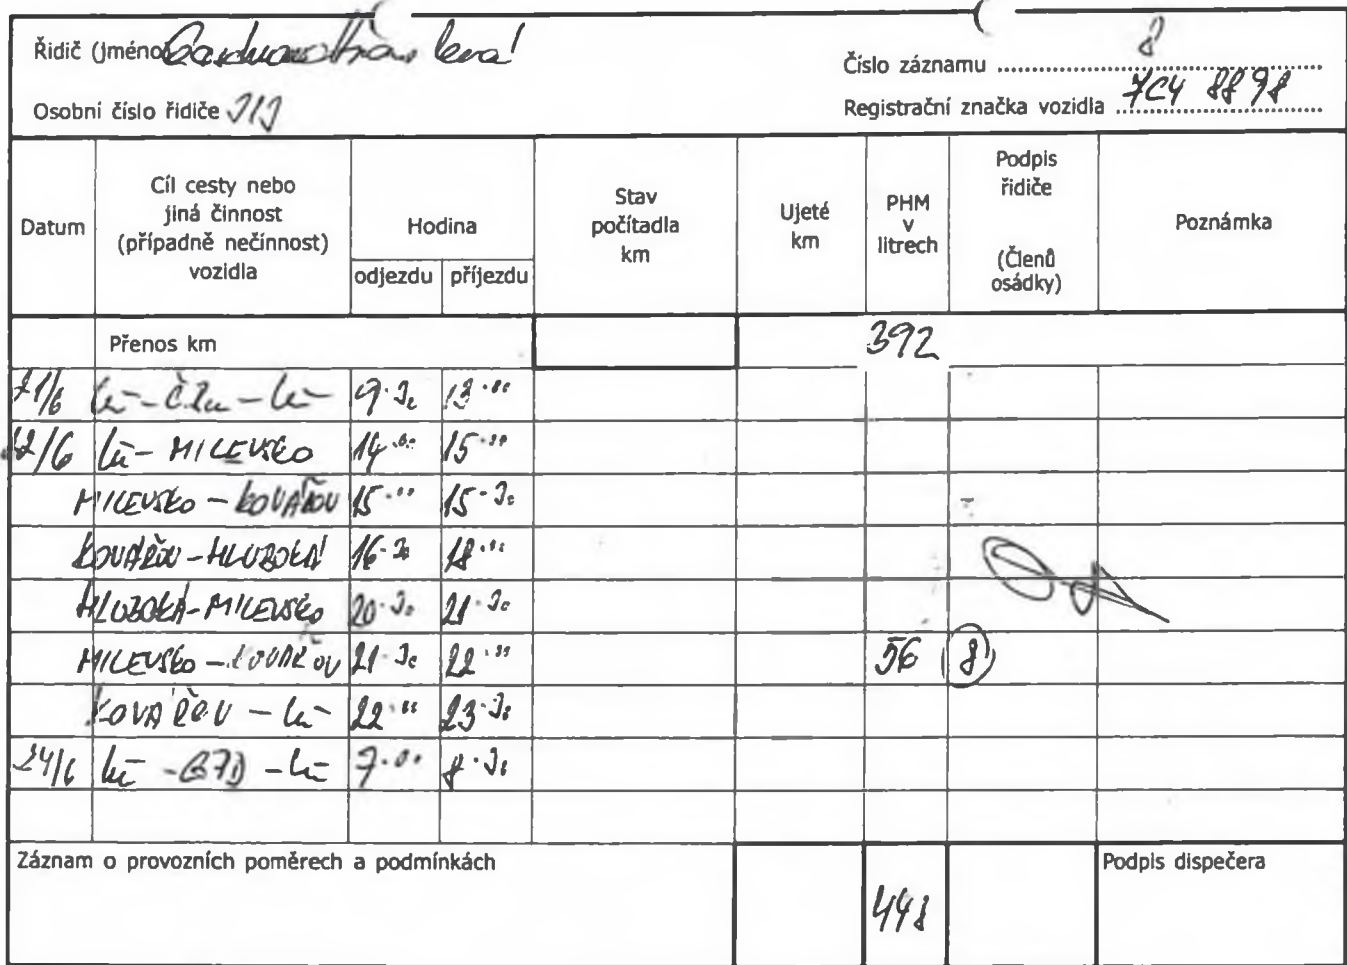 Řidič (Jméno
Číslo záznamu 8
Osobní číslo řidiče
Registrační značka vozidla 7C4 8898
Datum
Cíl cesty nebo
jiná činnost
(případně nečinnost)
vozidla
Hodina
odjezdu příjezdu
Stav
počítadla
km
Ujeté
km
PHM
v
litrech
Podpis
řidiče
(Členů
osádky)
Poznámka
Přenos km 392
21/6 9.30 13.00
22/6 - MILEVSKO 14.00 15.00
MILEVSKO - KOVÁŘOV 15.00 15.30
KOVÁŘOV - HLUBOKÁ 16.30 18.00
HLUBOKÁ - MILEVSKO 20.30 21.30
MILEVSKO - KOVÁŘOV 21.30 22.00 56 8
KOVÁŘOV - 22.00 23.30
24/6 7.00 8.30
Záznam o provozních poměrech a podmínkách
448
Podpis dispečera